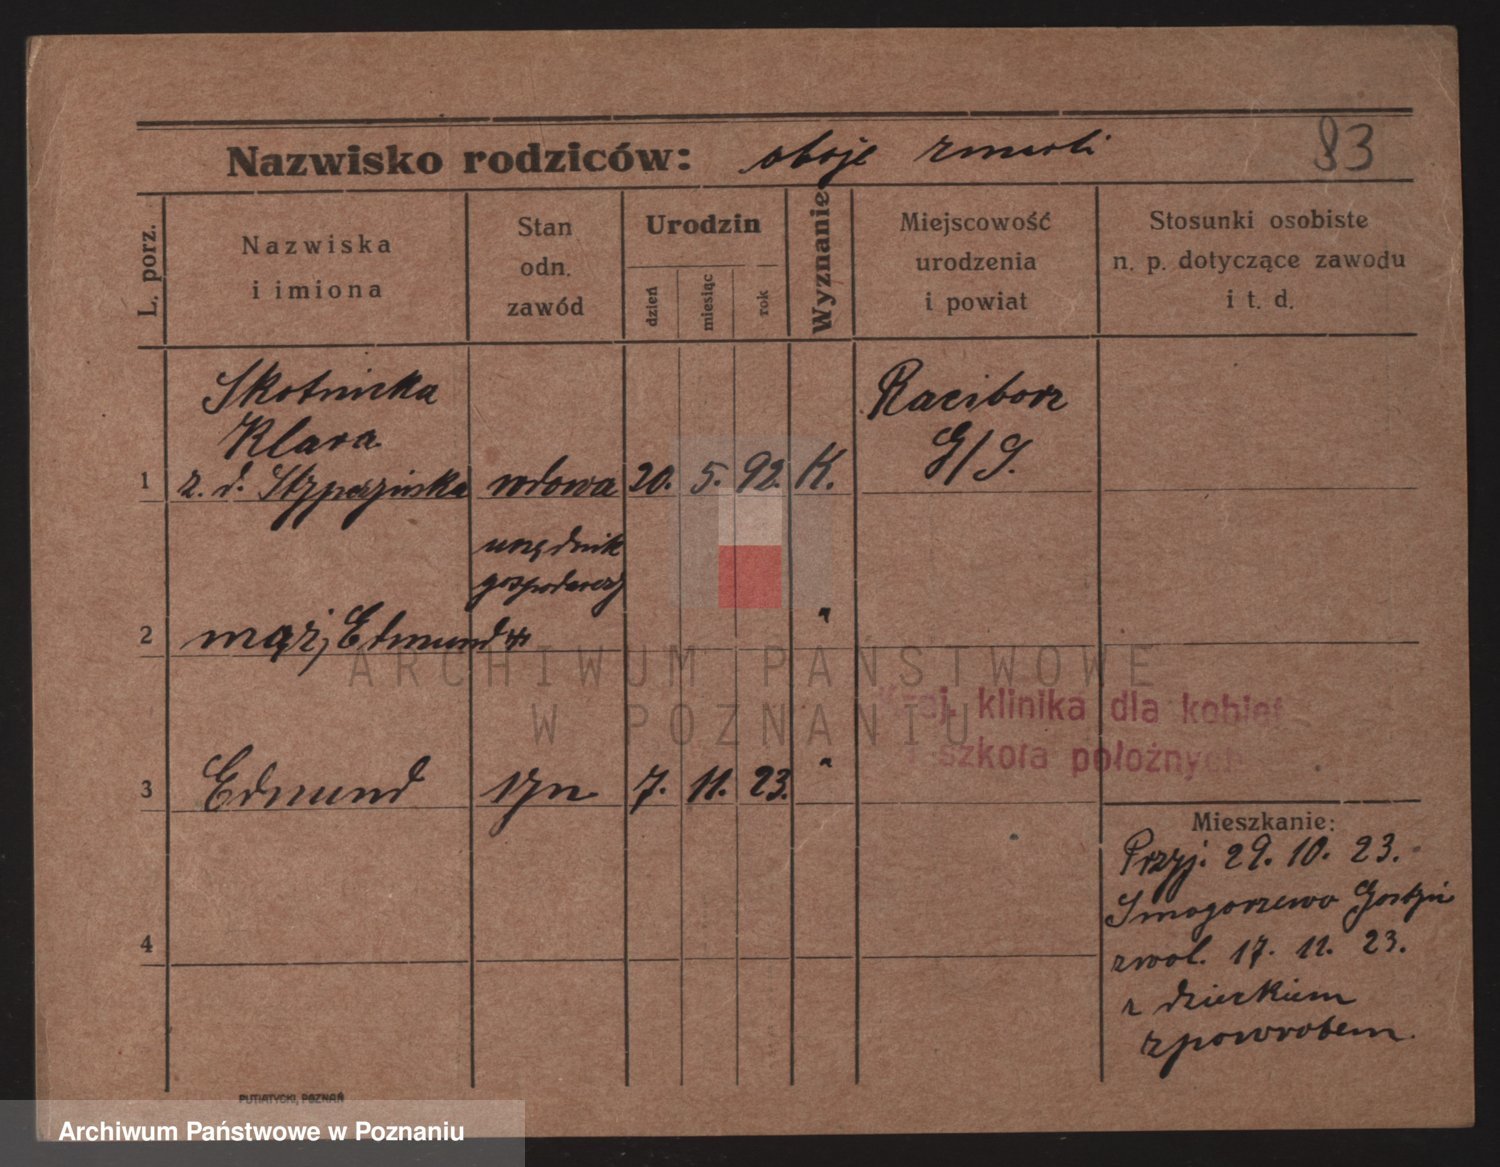 Nazwisko rodziców: oboje zmarli 83
L. porz.
Nazwiska
i imiona
Stan
odn.
zawód
Urodzin
dzień
miesiąc
rok
Wyznanie
Miejscowość
urodzenia
i powiat
Stosunki osobiste
n. p. dotyczące zawodu
i t. d.
Skotnicka
Klara
1 z. d. wdowa 20. 5. 92. K.
Raciborz
G/S.
urzędnik
gospodarczy
2 mąż, Edmund "
3 Edmund syn 7. 11. 23. "
4
Kraj. klinika dla kobiet
i szkoła położnych
Mieszkanie:
Przyj. 29. 10. 23.
Smogorzewo Gostyń
zwol. 17. 11. 23.
z dzieckiem
zpowrotem.
PUTIATYCKI, POZNAŃ
ARCHIWUM PAŃSTWOWE
W POZNANIU
Archiwum Państwowe w Poznaniu